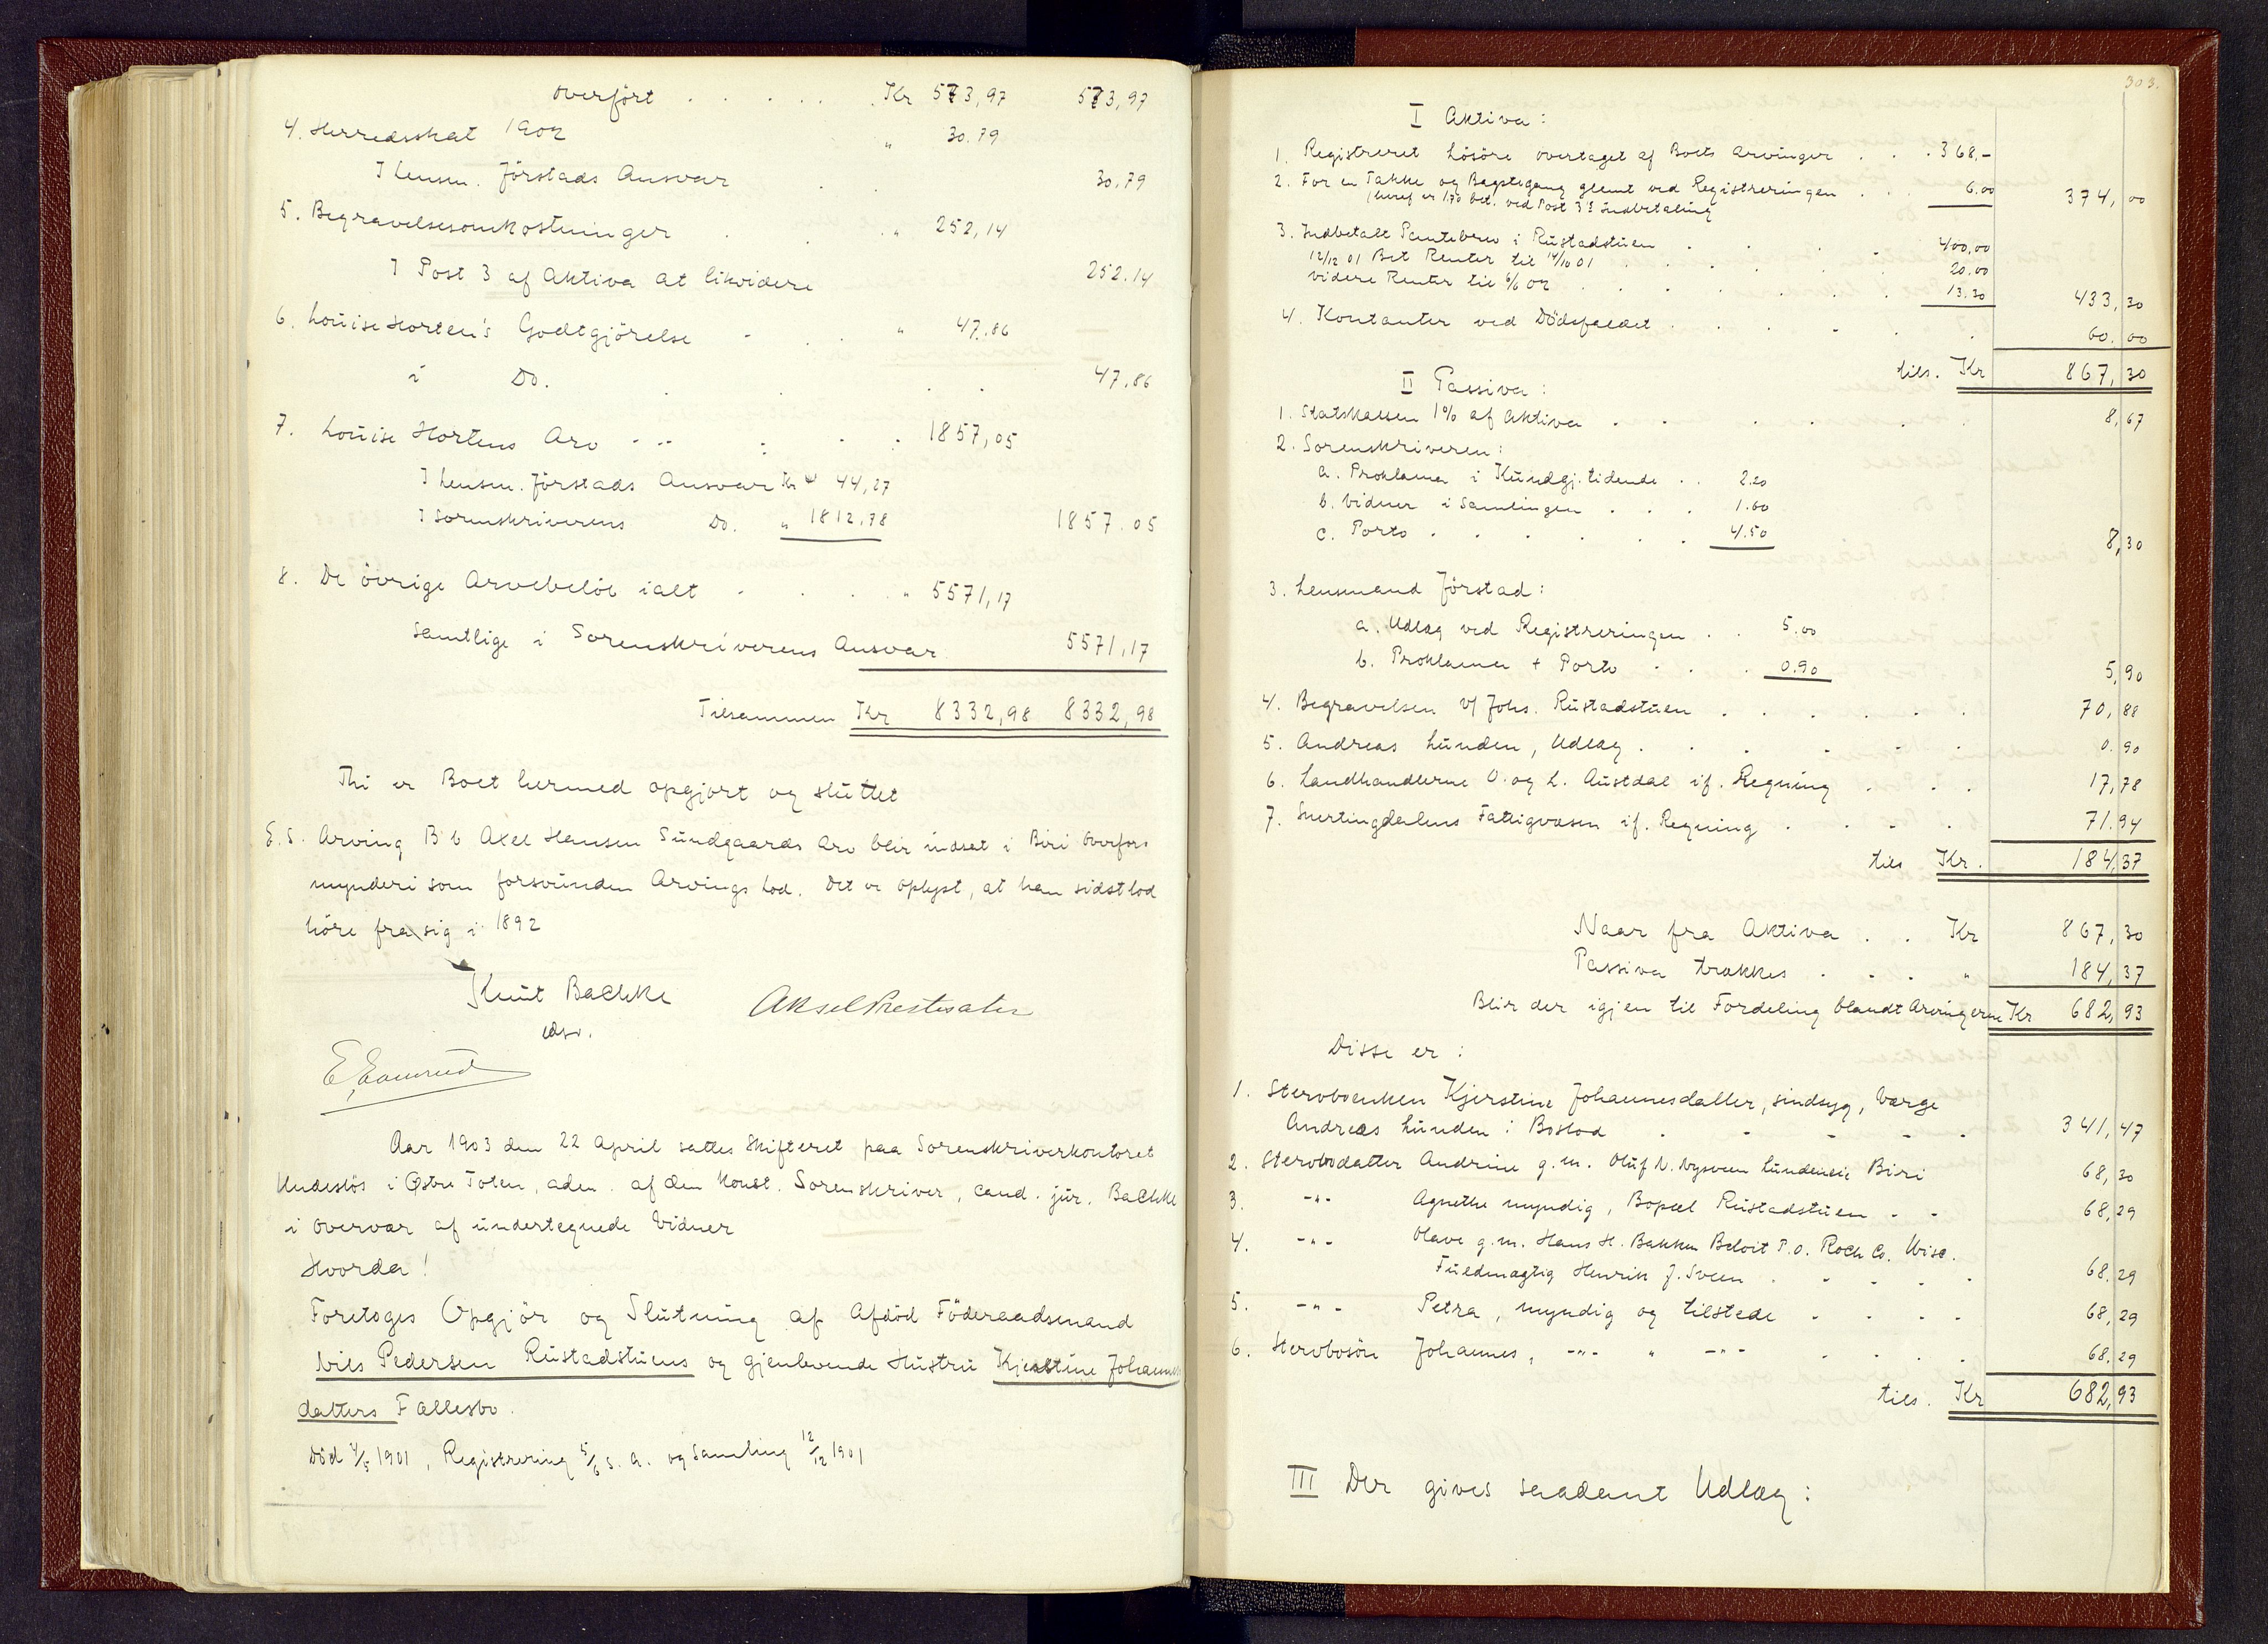 overført . . . . . . Kr 573,97 573,97
4. Herredsskat 1902 " 30.79
I Lensm. Førstads Ansvar . . 30,79
5. Begravelsesomkostninger . . . " 252,14
I Post 3 af Aktiva at likvidere 252.14
6. Louise Horten's Godtgjørelse - . . " 47.86
i Do. . . . . 47.86
7. Louise Hortens Arv - -- . . . 1857,05
I Lensm. Førstads Ansvar Kr 44,27
I Sorenskriverens Do. " 1812,78 1857.05
8. De øvrige Arvebeløb ialt - . . . " 5571,17
samtlige i Sorenskriverens Ansvar 5571,17
Tilsammen Kr 8332,98 8332,98
Thi er Boet hermed opgjort og sluttet
E.S. Arving B b Axel Hansen Sundgaards Arv blir indsat i Biri Overfor-
mynderi som forsvunden Arvings Lod. Det er oplyst, at han sidst lod
høre fra sig i 1892
Knut Bachke
Aksel Prestesater
Aar 1903 den 22 April sattes Skifteret paa Sorenskriverkontoret
i Østre Toten, adm. af den konst. Sorenskriver, cand. jur. Bachke
i Overvær af undertegnede Vidner
Hvorda!
Foretoges Opgjør og Slutning af Afdød Føderaadsmand
Nils Pedersen Rustadstuens og gjenlevende Hustru Kjerstine Johannes
datters Fællesbo.
Død 4/5 1901, Registrering 5/6 s. a. og Samling 12/12 1901
303.
I Aktiva:
1. Registreret Løsøre overtaget af Boets Arvinger . . . 368,-
2. For en Takke og Bagstegang glemt ved Registreringen . . 6.00 374,00
(heraf er 1.70 bet. ved Post 3's Indbetaling
3. Indbetalt Pantebrev i Rustadstuen . . . . 400,00
12/12 01 Bet Renter til 14/10 01 . . . . . 20.00
videre Renter til 6/6 02 . . . . . . 13.30 433,30
4. Kontanter ved Dødsfaldet . . . . . . 60.00
tils. Kr 867,30
II Passiva:
1. Statskassen 1% af Aktiva . . . . . . 8,67
2. Sorenskriveren:
a. Proklama i Kundgj. tidende . . 2.20
b. Vidner i Samlingen . . . 1.60
c. Porto . . . . . . 4.50 8,30
3. Lensmand Førstad:
a. Udlæg ved Registreringen . . 5.00
b. Proklama + Porto . . . 0.90 5,90
4. Begravelsen v/ Johs. Rustadstuen . . . . . . 70,88
5. Andreas Lunden, Udlæg . . . . . . 0.90
6. Landhandlerne O. og L. Austdal if. Regning . . . 17,78
7. Snertingdalens Fattigvæsen if. Regning . . . . 71.94
tils Kr. 184,37
Naar fra Aktiva . . Kr 867,30
Passiva trækkes . . . " 184,37
Blir der igjen til Fordeling blandt Arvingerne Kr 682,93
Disse er:
1. Stervboenken Kjerstine Johannesdatter, sindsyg, Værge
Andreas Lunden : Boslod . . . . . 341,47
2. Stervbodatter Andrine g.m. Oluf N. Nysveen Lundeneie Biri 68,30
3. -"- Agnethe myndig, Bopæl Rustadstuen - - 68,29
4. -"- Olave g.m. Hans H. Bakken Beloit P.O. Rock Co. Wisc.
Fuldmægtig Henrik J. Sveen . . . . . 68.29
5. -"- Petra, myndig og tilstede . . . . 68,29
6. Stervbosøn Johannes, -"- " -"- . . . . 68.29
tils. Kr 682,93
III Der gives saadant Udlæg: